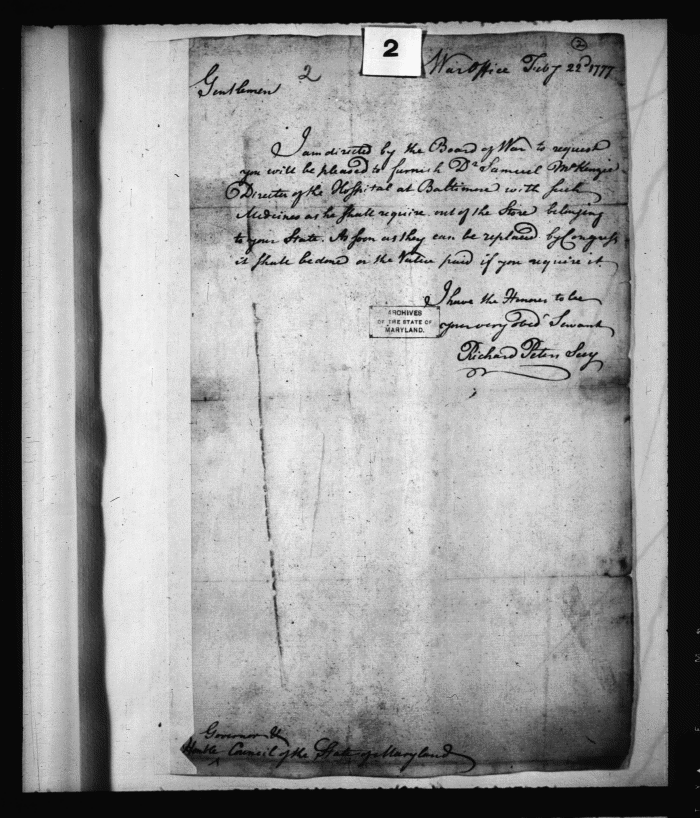 2
②
War Office Feby 22d 1777
Gentlemen 2
I am directed by the Board of War to request
you will be pleased to furnish Dr Samuel McKenzie
Director of the Hospital at Baltimore with such
Medicines as he shall require out of the Store belonging
to your State. As soon as they can be replaced by Congress
it shall be done or the Value paid if you require it
I have the Honour to be
your very Obedt Servant
Richard Peters Secy
ARCHIVES
OF THE STATE OF
MARYLAND.
Governor &
Honble Council of the State of Maryland